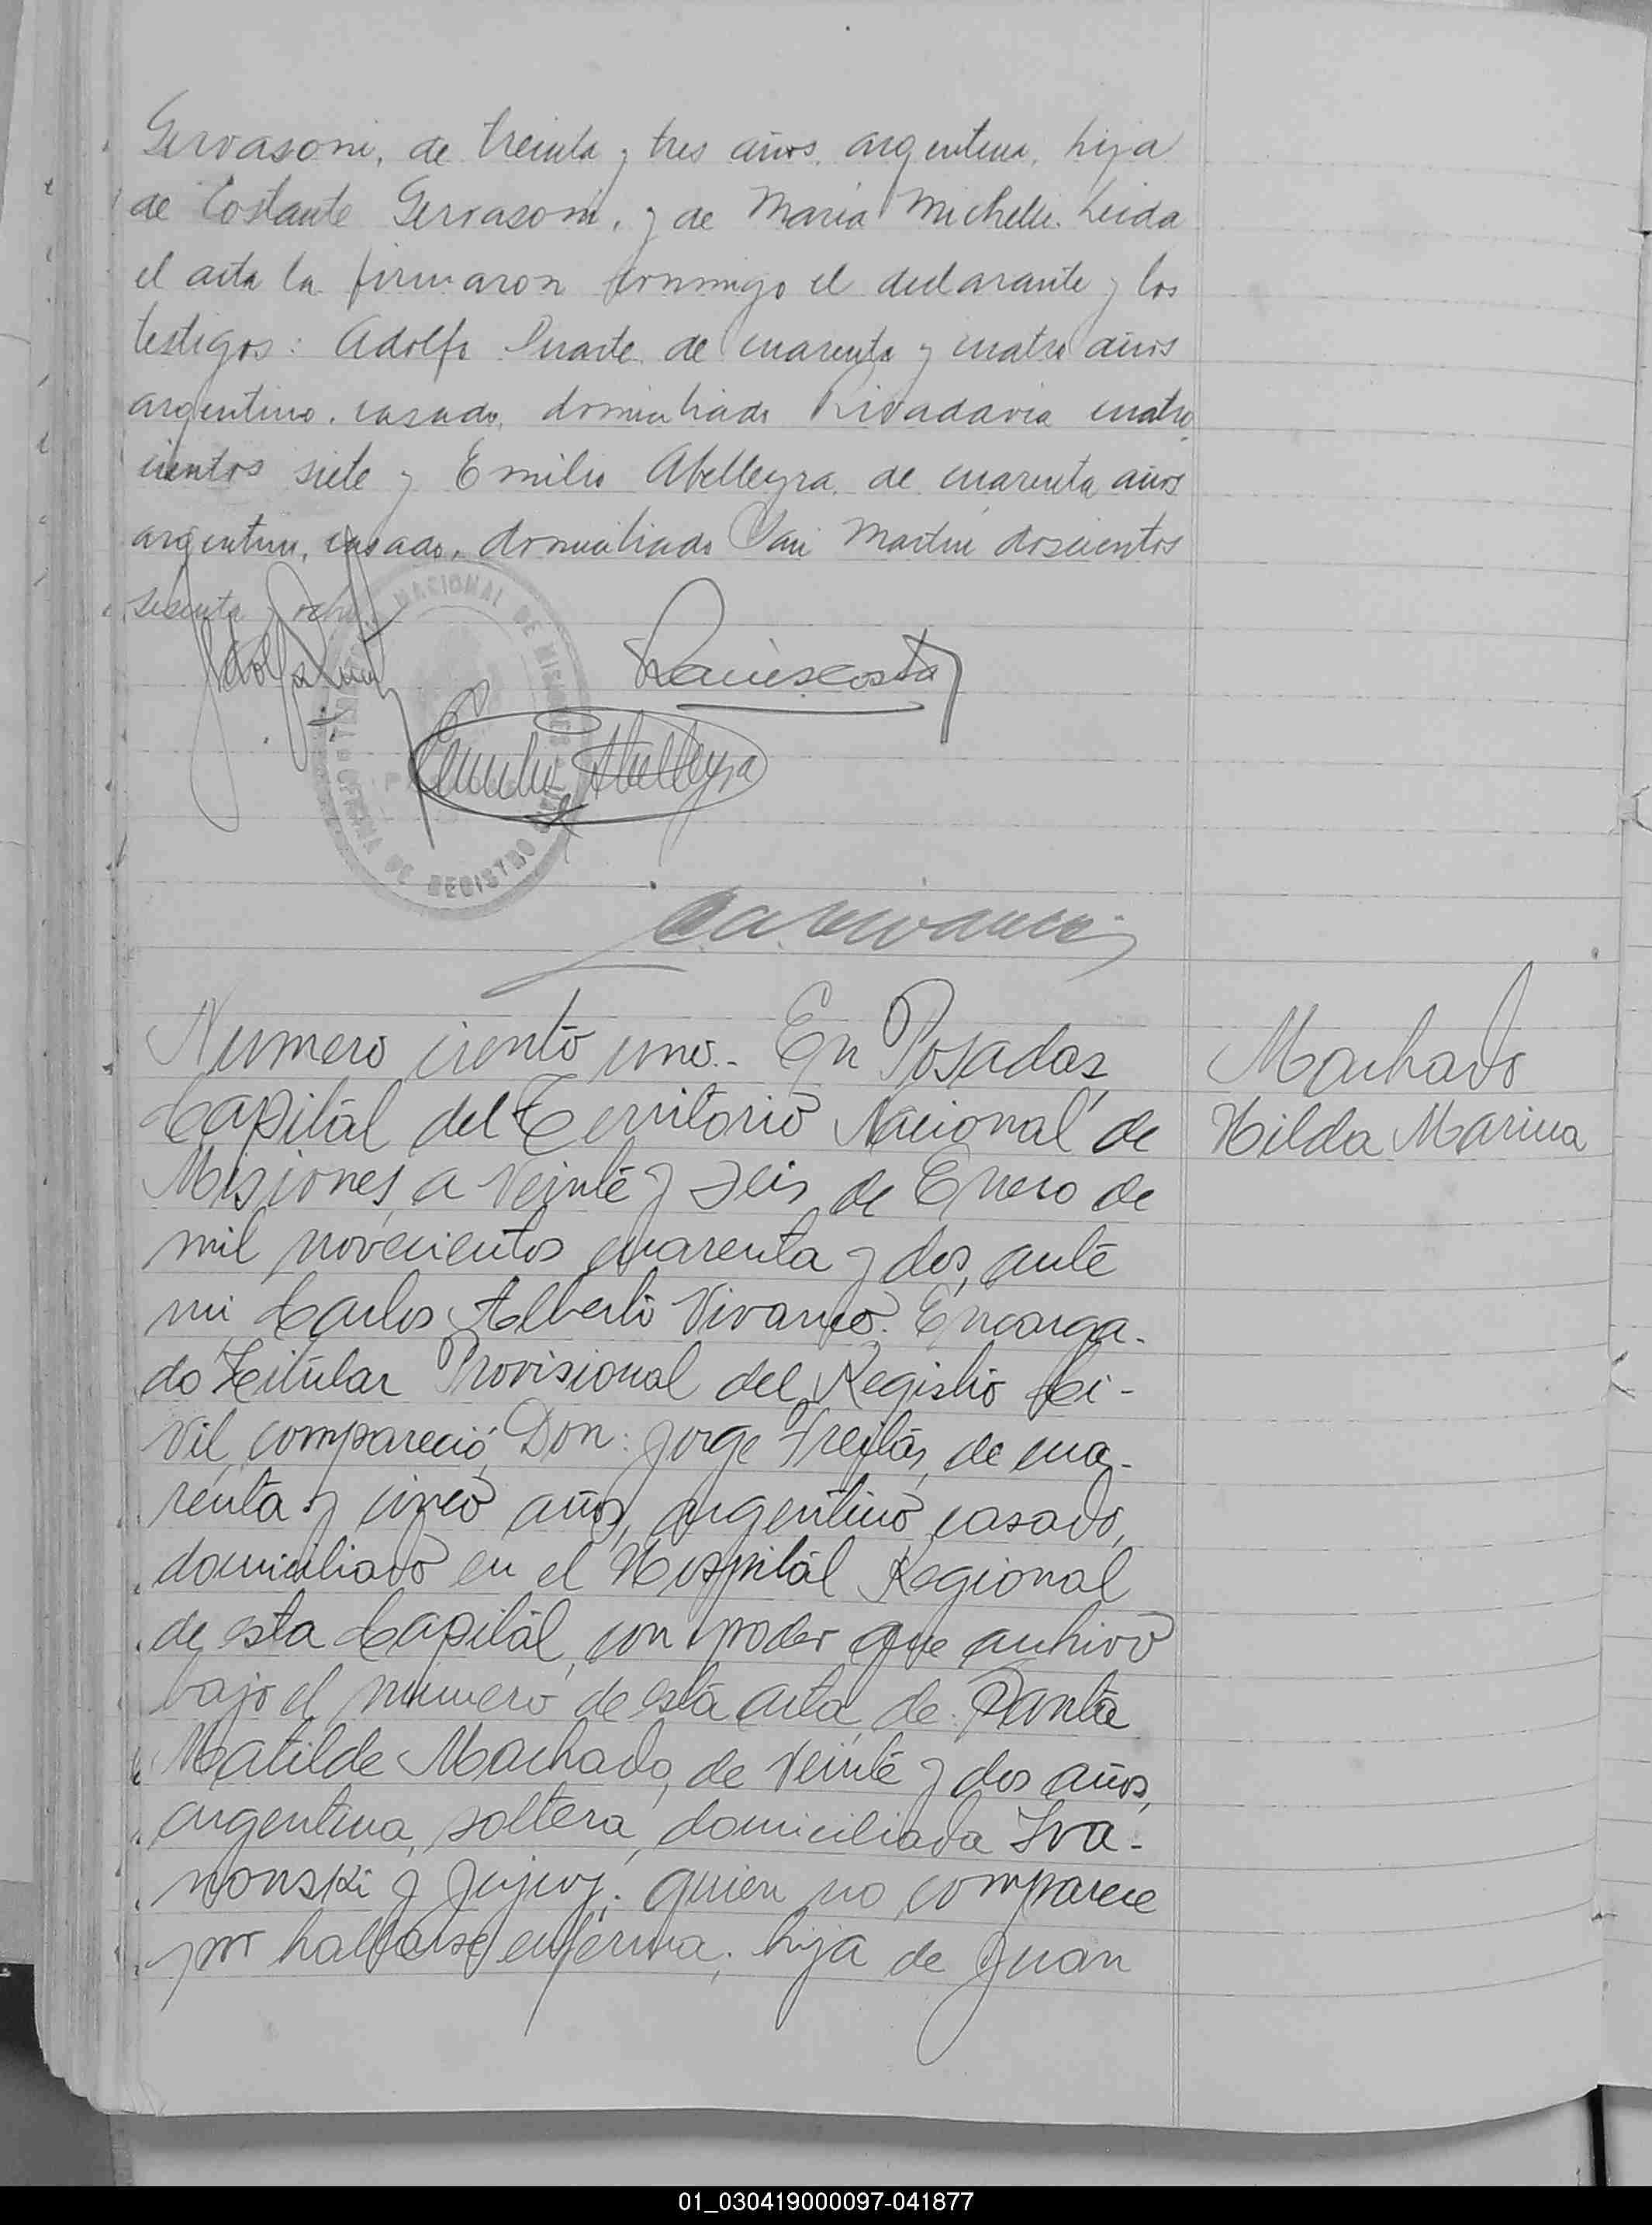 Gervasoni, de treinta y tres años, argentina, hija
de Costante Gervasoni, y de Maria Michelli. Leida
el acta la firmaron conmigo el declarante y los
testigos: Adolfo Duarte de cuarenta y cuatro años
argentino, casado, domiciliado Rivadavia cuatro
cientos siete y Emilio Abelleyra de cuarenta años
argentino, casado, domiciliado San Martin doscientos
sesenta y ocho
NACIONAL DE MISIONES
OFICINA DE REGISTRO
Emilio Abelleyra
Numero ciento uno.- En Posadas,
Capital del Territorio Nacional de
Misiones, a veinte y seis de Enero de
mil novecientos cuarenta y dos, ante
mi Carlos Alberto Vivanco. Encarga-
do Titular Provisional del Registro Ci-
vil, compareció, Don: Jorge Freitas, de cua-
renta y cinco años, argentino, casado,
domiciliado en el Hospital Regional
de esta Capital, con poder que archivo
bajo el numero de esta acta, de
Matilde Machado, de veinte y dos años,
argentina, soltera, domiciliada Iva-
nowski y Jujuy; quien no comparece
por hallarse enferma; hija de Juan
Machado
Hilda Marina
01_030419000097-041877